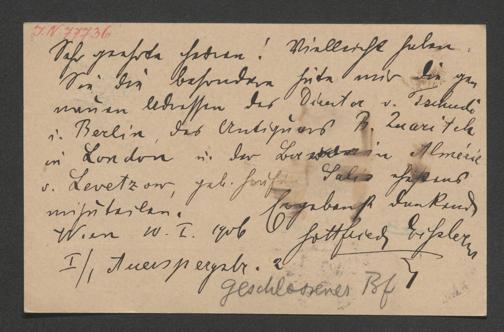 I.N. 77736
Sehr geehrte Herren! Vielleicht haben
Sie die besondere Güte mir die ge-
nauen Adressen des Director v. Tschudi
i. Berlin, des Antiquars B. Quaritch
in London u. der Almérie
v. Levetzow, geb. Salis ehestens
mitzuteilen.
Ergebenst dankend
Wien 10. I. 1906
Gottfried Eissler
I/1, Auerspergstr. 2
geschlossener Bf